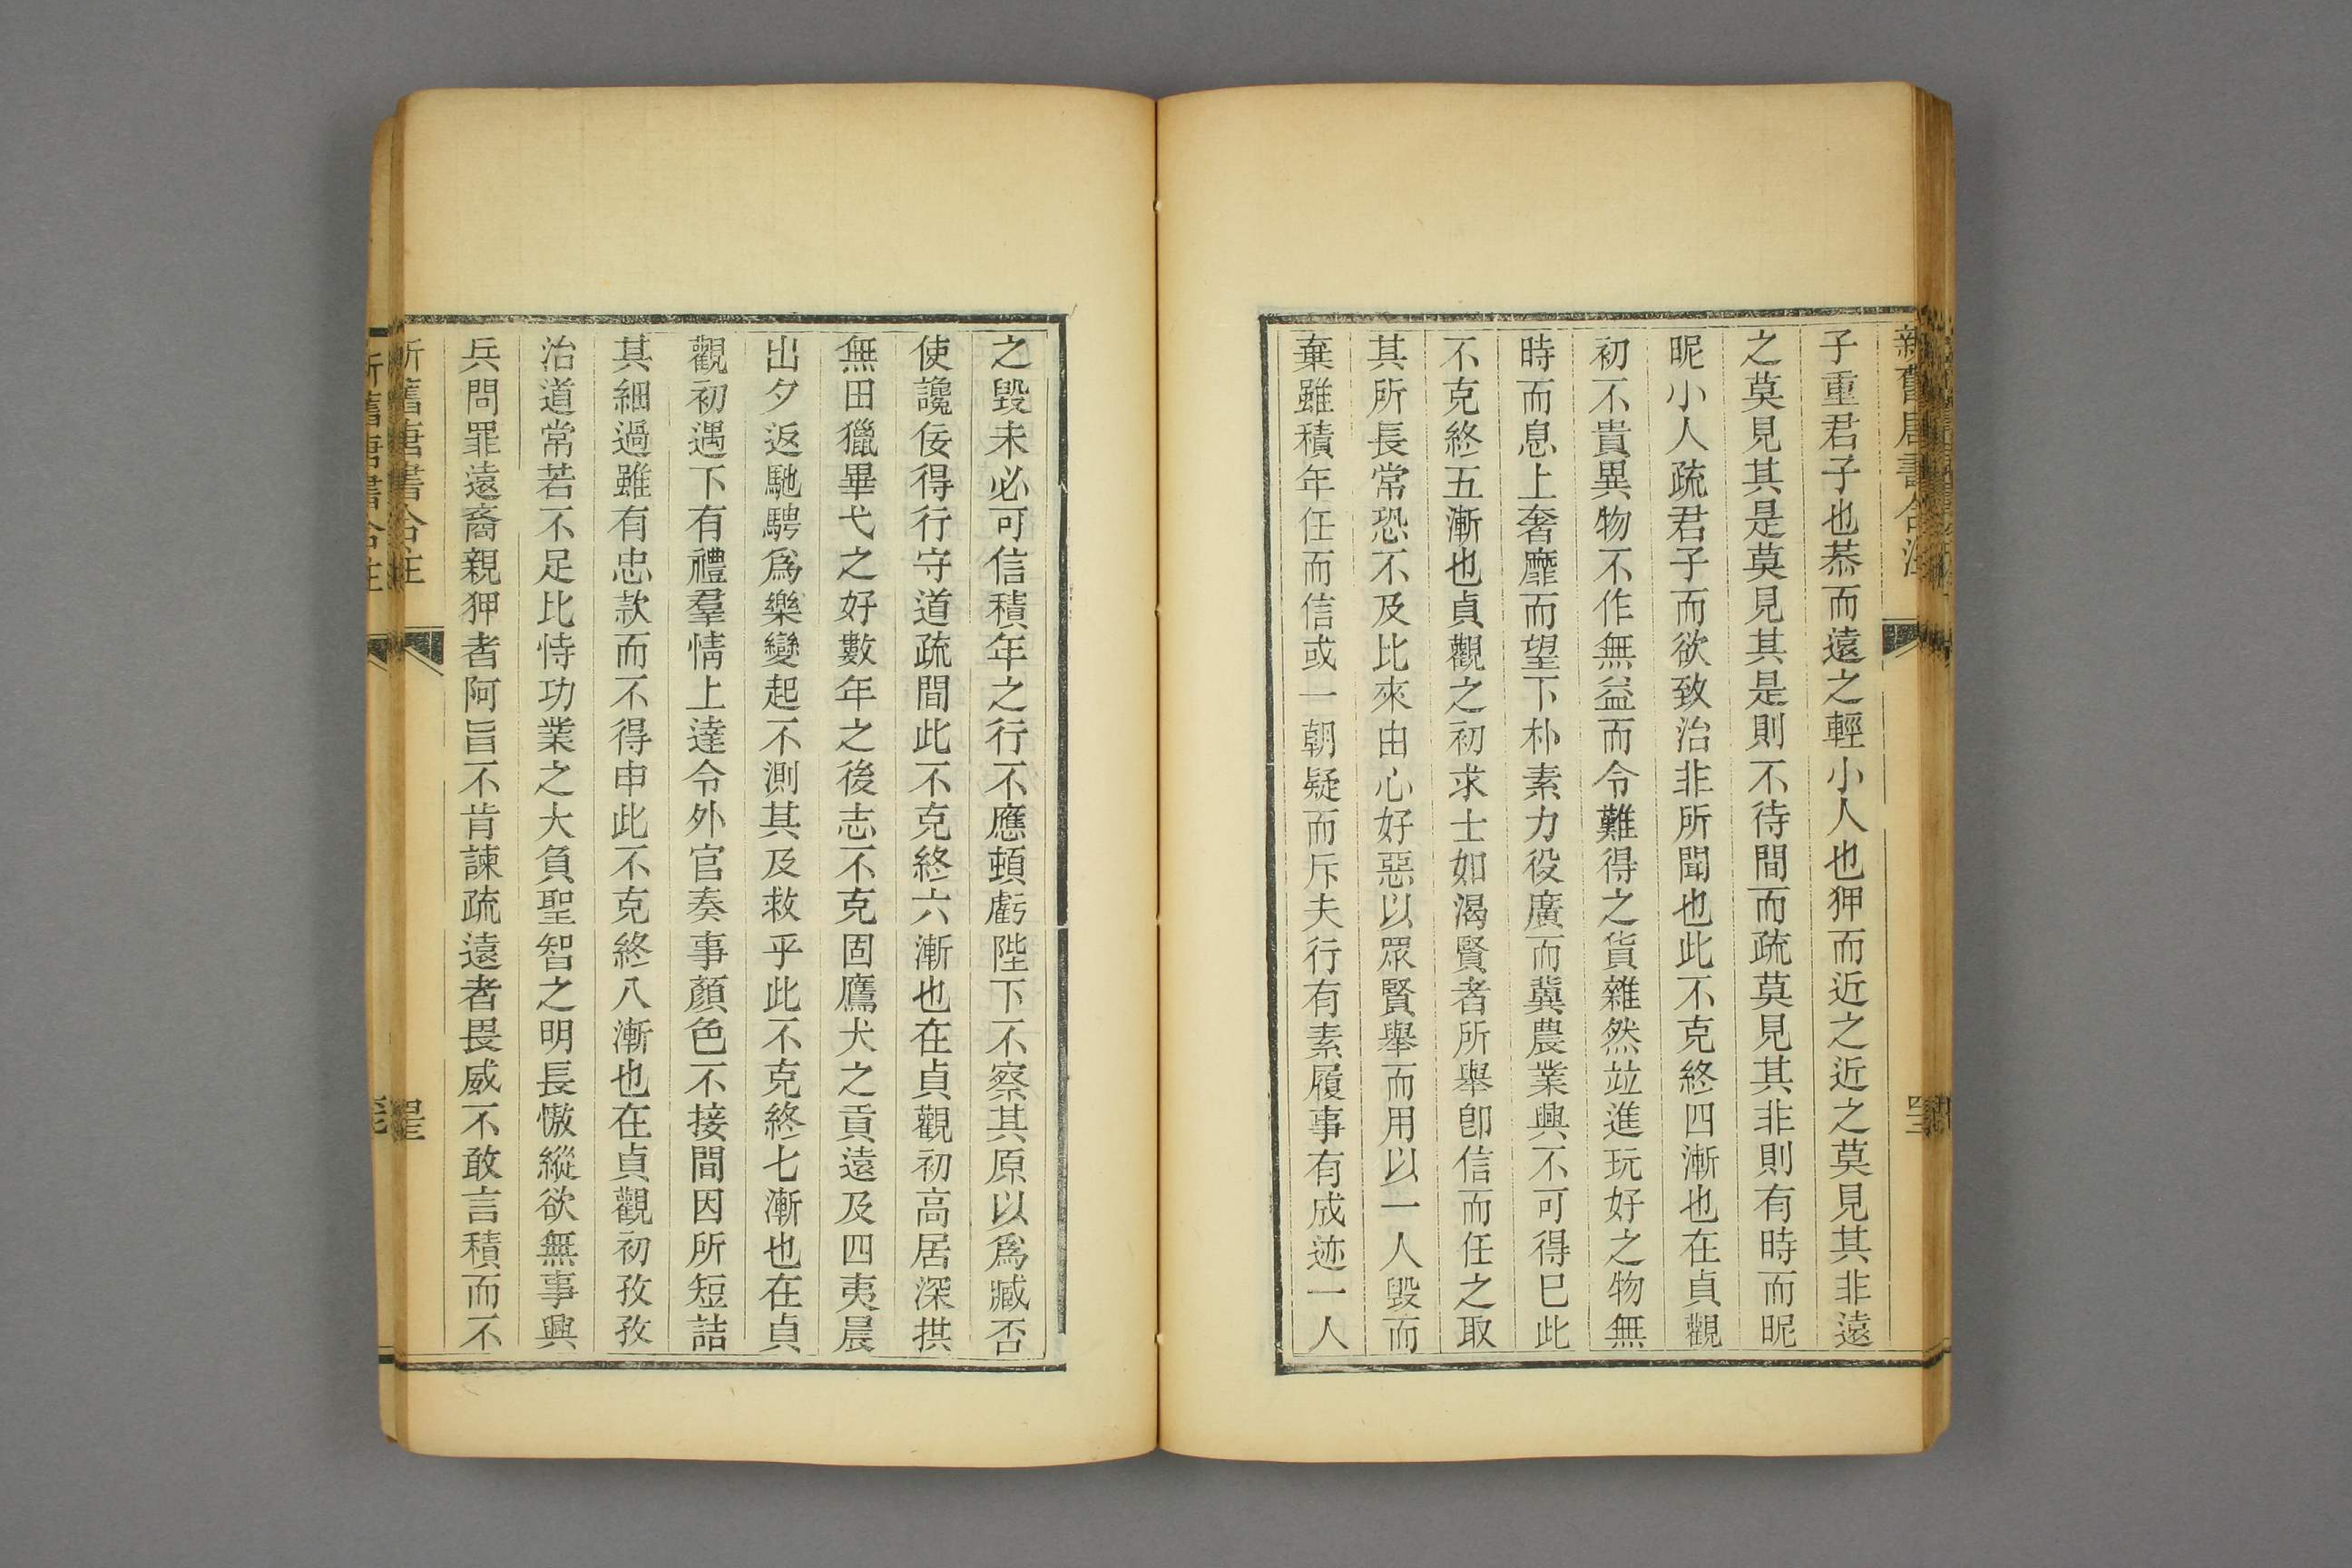 新舊唐書合注
子重君子也恭而遠之輕小人也狎而近之近之莫見其非遠
之莫見其是莫見其是則不待間而疏莫見其非則有時而昵
昵小人疏君子而欲致治非所聞也此不克終四漸也在貞觀
初不貴異物不作無益而今難得之貨雜然竝進玩好之物無
時而息上奢靡而望下朴素力役廣而冀農業興不可得巳此
不克終五漸也貞觀之初求士如渴賢者所舉卽信而任之取
其所長常恐不及比來由心好惡以眾賢舉而用以一人毀而
棄雖積年任而信或一朝疑而斥夫行有素履事有成迹一人
之毀未必可信積年之行不應頓虧陛下不察其原以爲臧否
使讒佞得行守道疏間此不克終六漸也在貞觀初高居深拱
無田獵畢弋之好數年之後志不克固鷹犬之貢遠及四夷晨
出夕返馳騁爲樂變起不測其及救乎此不克終七漸也在貞
觀初遇下有禮羣情上達今外官奏事顏色不接間因所短詰
其細過雖有忠款而不得申此不克終八漸也在貞觀初孜孜
治道常若不足比恃功業之大負聖智之明長慠縱欲無事興
兵問罪遠裔親狎者阿旨不肯諫疏遠者畏威不敢言積而不
新舊唐書合注